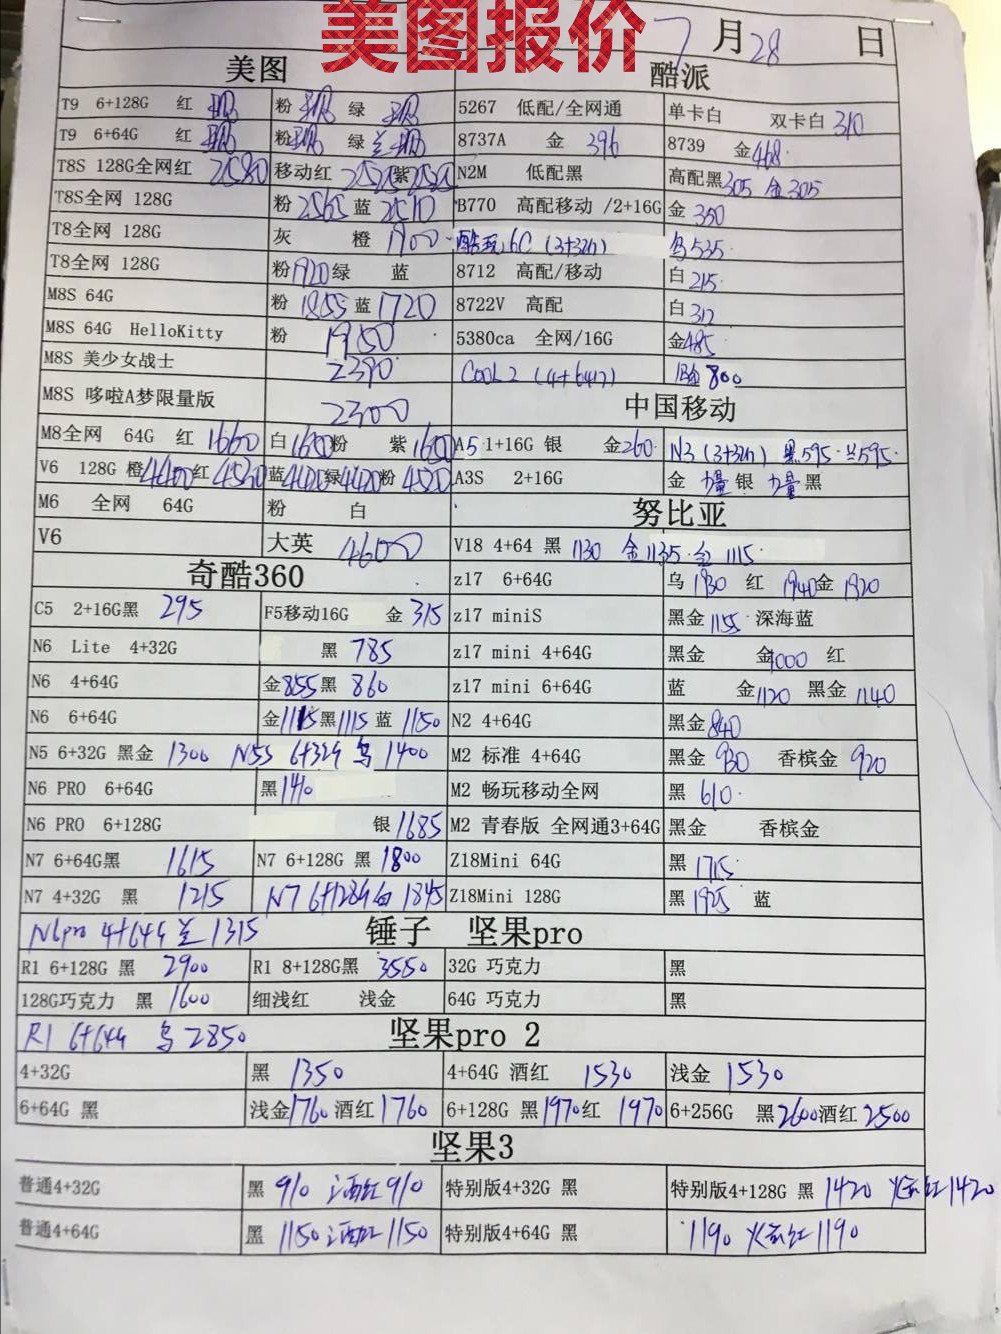 美图报价 7月28日
美图 酷派
T9 6+128G 红 粉 绿 5267 低配/全网通 单卡白 双卡白 310
T9 6+64G 红 粉 绿 8737A 金 396 8739 金 468
T8S 128G全网红 2580 移动红 紫 N2M 低配黑 高配黑 305 金 305
T8S全网 128G 粉 2565 蓝 2510 B770 高配移动 /2+16G 金 350
T8全网 128G 灰 橙 1900 酷玩6C (3+32G) 乌 535
T8全网 128G 粉 1920 绿 蓝 8712 高配/移动 白 215
M8S 64G 粉 1855 蓝 1720 8722V 高配 白 312
M8S 64G HelloKitty 粉 1950 5380ca 全网/16G 金 485
M8S 美少女战士 2390 COOL 2 (4+64G) 800
M8S 哆啦A梦限量版 2300 中国移动
M8全网 64G 红 1660 白 1650 粉 紫 1600 A5 1+16G 银 金 260 N3 (3+32G) 黑 595 兰 595
V6 128G 橙 4400 红 4520 蓝 4420 绿 4420 粉 4520 A3S 2+16G 金 力量 银 力量 黑
M6 全网 64G 粉 白 努比亚
V6 大英 4600 V18 4+64 黑 1130 金 1135 1115
奇酷360 z17 6+64G 乌 1930 红 1940 金 1920
C5 2+16G黑 295 F5移动16G 金 315 z17 miniS 黑金 1155 深海蓝
N6 Lite 4+32G 黑 785 z17 mini 4+64G 黑金 金 1000 红
N6 4+64G 金 855 黑 860 z17 mini 6+64G 蓝 金 1120 黑金 1140
N6 6+64G 金 1115 黑 1115 蓝 1150 N2 4+64G 黑金 840
N5 6+32G 黑金 1300 N5S 6+32G 乌 1400 M2 标准 4+64G 黑金 930 香槟金 920
N6 PRO 6+64G 黑 1410 M2 畅玩移动全网 黑 610
N6 PRO 6+128G 银 1685 M2 青春版 全网通3+64G 黑金 香槟金
N7 6+64G黑 1615 N7 6+128G 黑 1800 Z18Mini 64G 黑 1715
N7 4+32G 黑 1215 N7 6+128G 白 1845 Z18Mini 128G 黑 1925 蓝
N6pro 4+64G 兰 1315 锤子 坚果pro
R1 6+128G 黑 2900 R1 8+128G黑 3550 32G 巧克力 黑
128G巧克力 黑 1600 细浅红 浅金 64G 巧克力 黑
R1 6+64G 乌 2850 坚果pro 2
4+32G 黑 1350 4+64G 酒红 1530 浅金 1530
6+64G 黑 浅金 1760 酒红 1760 6+128G 黑 1970 红 1970 6+256G 黑 2600 酒红 2500
坚果3
普通4+32G 黑 910 酒红 910 特别版4+32G 黑 特别版4+128G 黑 1420 火红 1420
普通4+64G 黑 1150 酒红 1150 特别版4+64G 黑 1190 1190